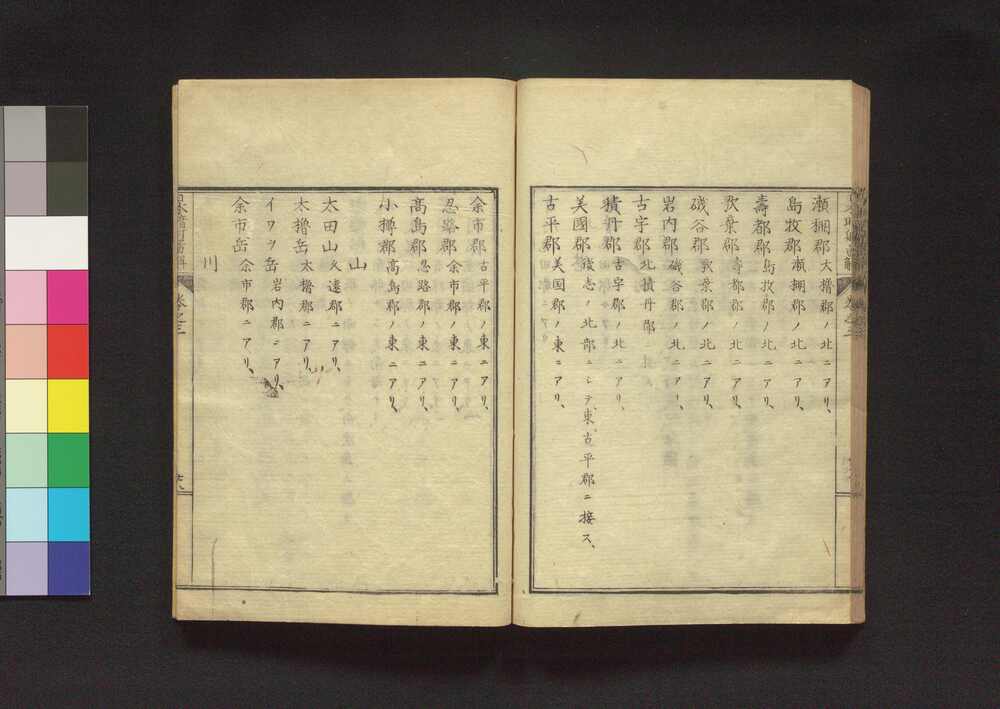 瀬棚郡太櫓郡ノ北ニアリ、
島牧郡瀬棚郡ノ北ニアリ、
壽都郡島牧郡ノ北ニアリ、
歌棄郡壽都郡ノ北ニアリ、
磯谷郡歌棄郡ノ北ニアリ、
岩内郡磯谷郡ノ北ニアリ、
古宇郡北積丹郡
積丹郡古宇郡ノ北ニアリ、
美國郡後志ノ北部ニシテ、東古平郡ニ接ス、
古平郡美國郡ノ東ニアリ、
余市郡古平郡ノ東ニアリ、
忍路郡余市郡ノ東ニアリ、
高島郡忍路郡ノ東ニアリ、
小樽郡高島郡ノ東ニアリ、
山
太田山久遠郡ニアリ、
太櫓岳太櫓郡ニアリ、
イワヲ岳岩内郡ニアリ、
余市岳余市郡ニアリ、
川
卷之三